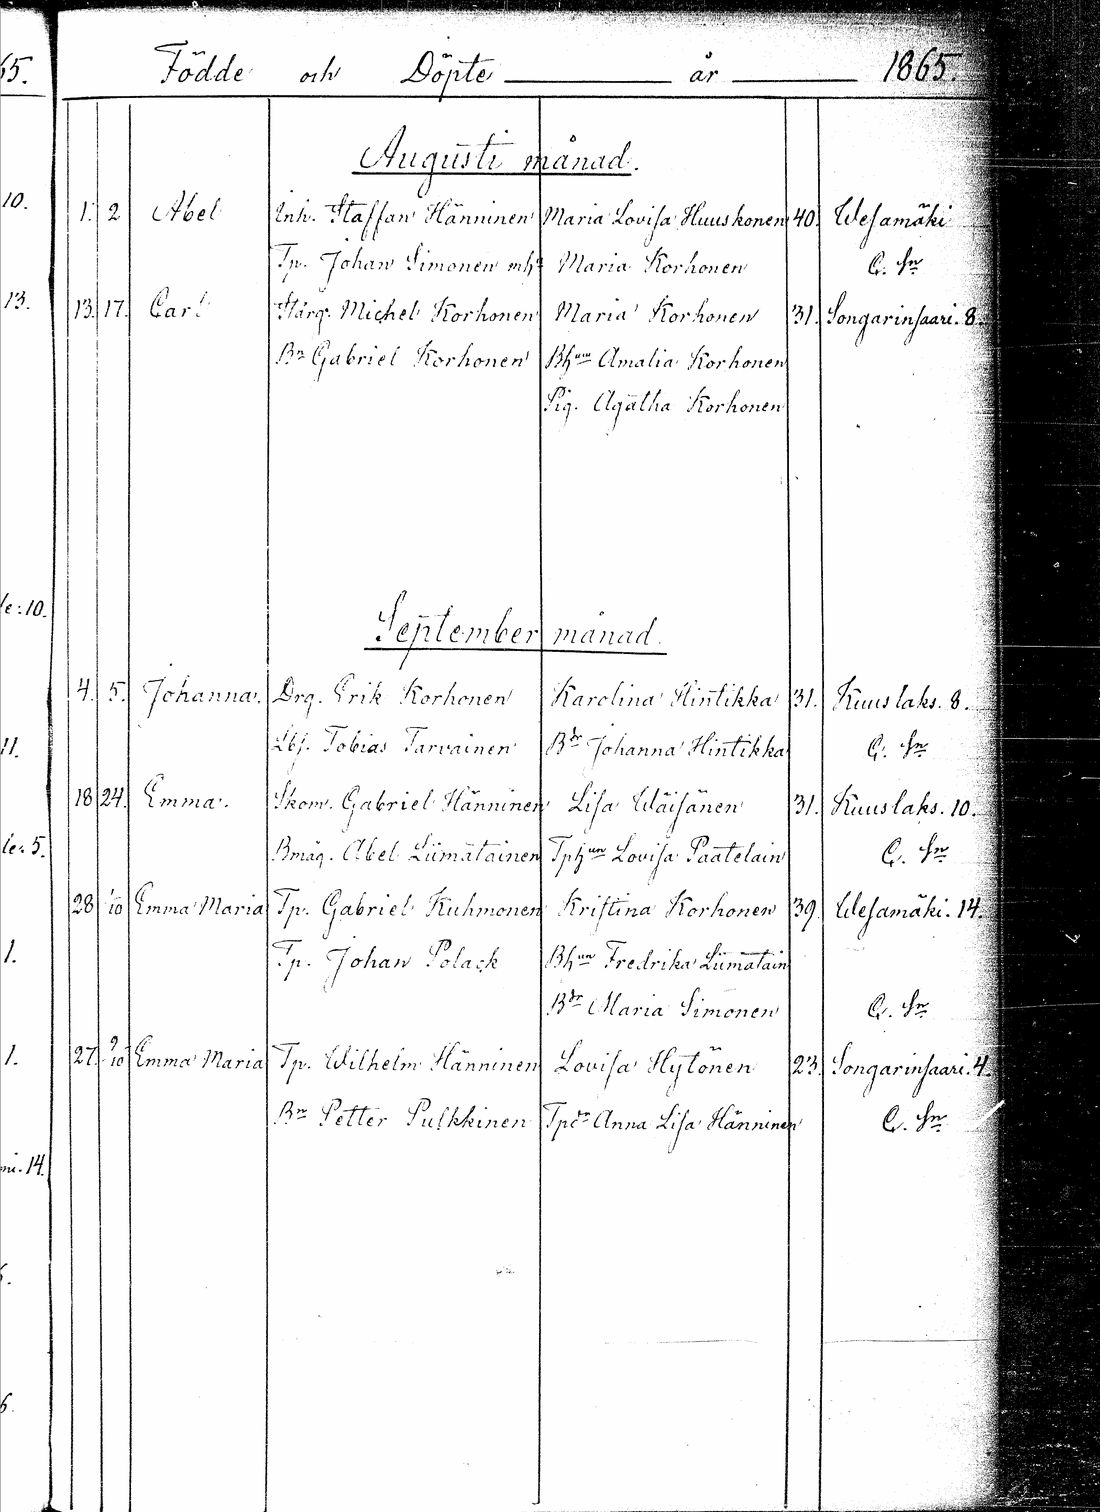 65.
Födde och Döpte år 1865.
Augusti månad.
10.
1. 2 Abel Inh. Staffan Hänninen Maria Lovisa Huuskonen 40. Wesamäki
Tp. Johan Simonen Maria Korhonen C. Sn
13.
13. 17. Carl Michel Korhonen Maria Korhonen 31. Songarinsaari. 8.
Bn Gabriel Korhonen Bhun Amalia Korhonen
Pig. Agatha Korhonen
September månad.
10.
4. 5. Johanna. Drg. Erik Korhonen Karolina Hintikka 31. Kuuslaks. 8.
11.
Tobias Tarvainen Bdr Johanna Hintikka C. Sn
18 24. Emma. Skom. Gabriel Hänninen Lisa Wäisänen 31. Kuuslaks. 10.
5.
Bmåg. Abel Liimatainen Tphun Lovisa Paatelain C. Sn
28 1/10 Emma Maria Tp. Gabriel Kuhmonen Kristina Korhonen 39. Wesamäki. 14.
1.
Tp. Johan Polack Bhun Fredrika Liimatain
Bdr Maria Simonen C. Sn
1.
27. 9/10 Emma Maria Tp. Wilhelm Hänninen Lovisa Hytönen 23. Songarinsaari. 4.
Bn Petter Pulkkinen Tpdr Anna Lisa Hänninen C. Sn
14.
6.